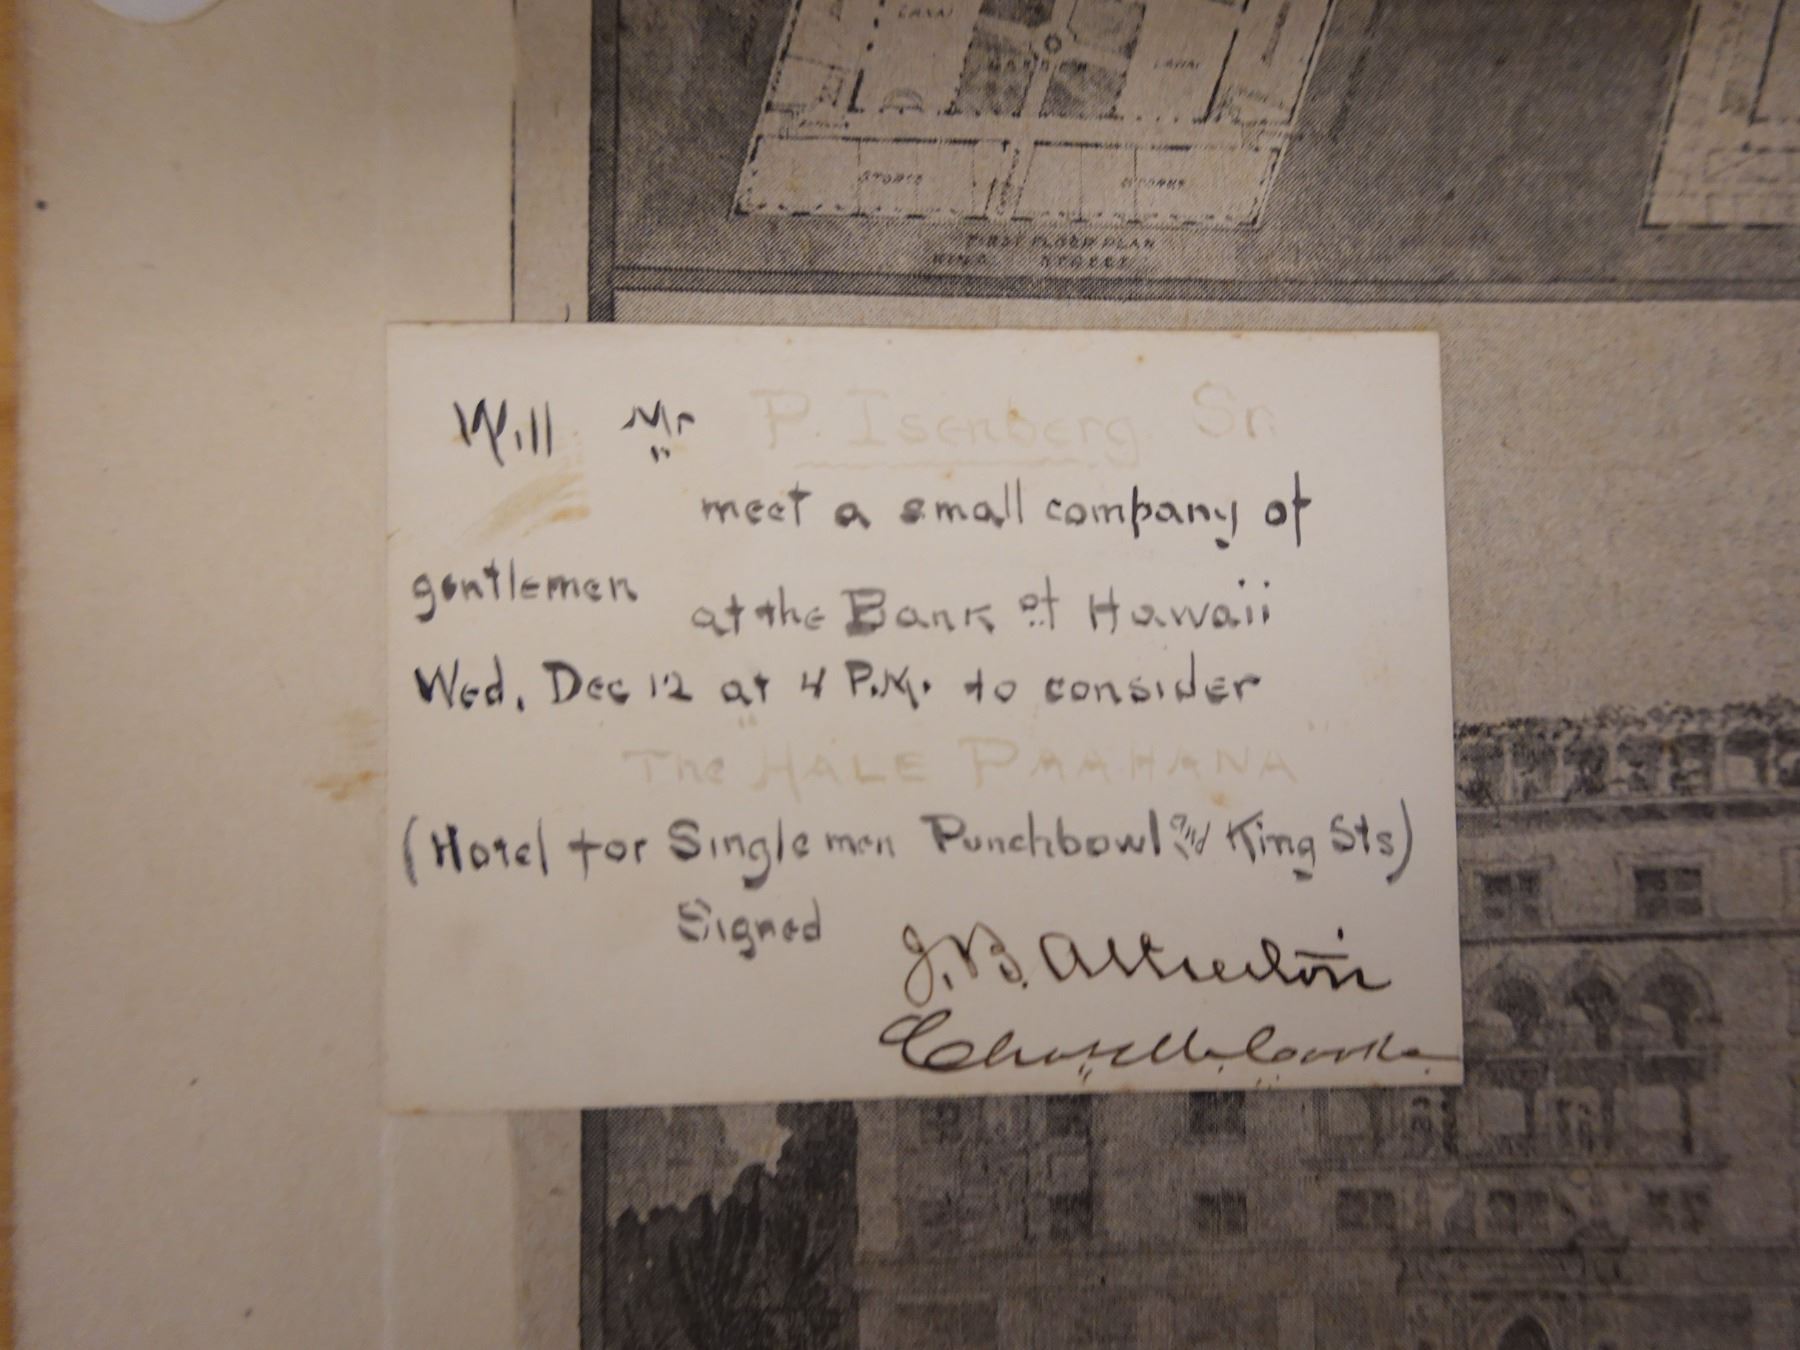 LANAI
GARDEN
LANAI
STORES
STORES
FIRST FLOOR PLAN
KING STREET
Will Mr P. Isenberg Sr.
meet a small company of
gentlemen
at the Bank of Hawaii
Wed. Dec 12 at 4 P.M. to consider
The "HALE PAAHANA"
(Hotel for Single men Punchbowl and King Sts)
Signed
J. B. Atherton
Chas M. Cooke